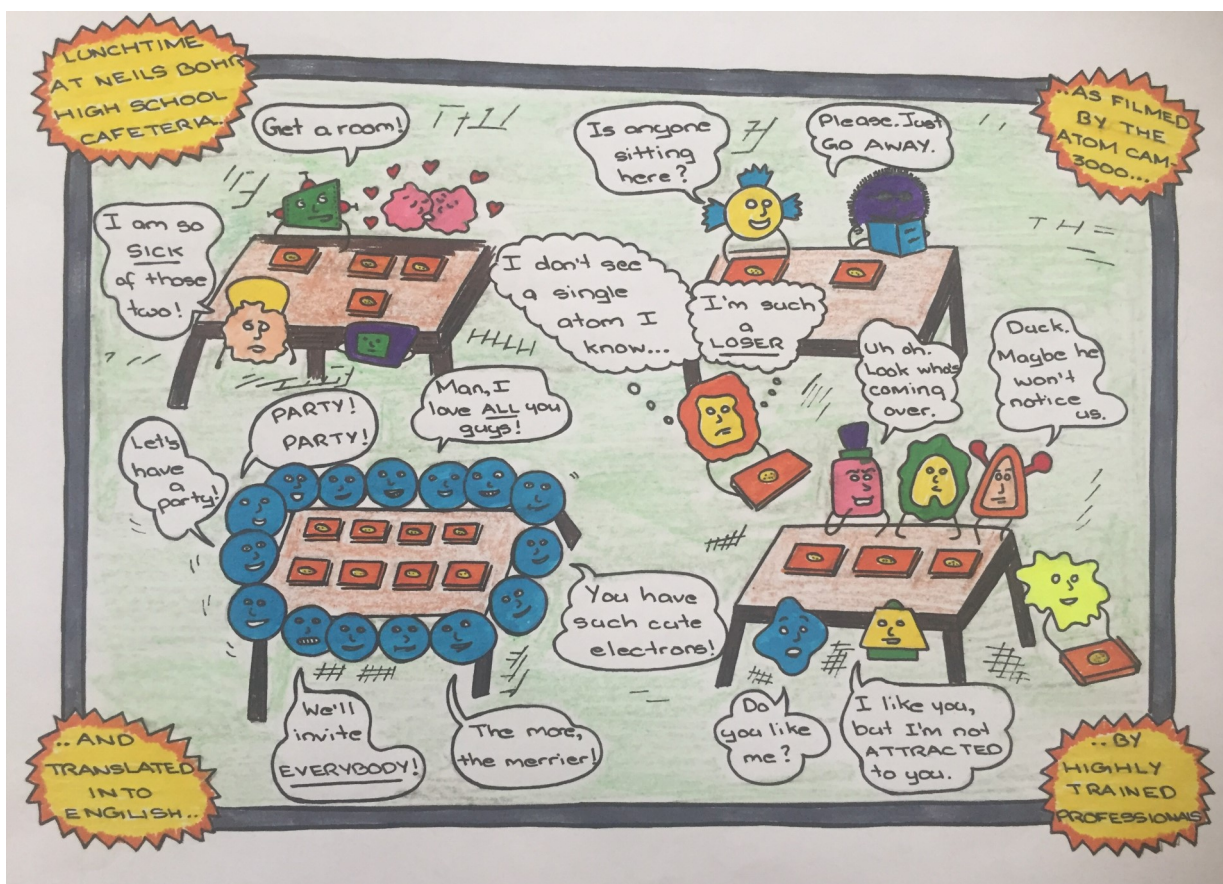 LUNCHTIME
AT NEILS BOHR
HIGH SCHOOL
CAFETERIA...
..AS FILMED
BY THE
ATOM CAM-
3000...
Get a room!
Is anyone
sitting
here?
Please. Just
GO AWAY.
I am so
SICK
of those
two!
I don't see
a single
atom I
know...
I'm such
a
LOSER
Uh oh.
Look who's
coming
over.
Duck.
Maybe he
won't
notice
us.
Let's
have
a
party!
PARTY!
PARTY!
Man, I
love ALL you
guys!
You have
such cute
electrons!
We'll
invite
EVERYBODY!
The more,
the merrier!
Do
you like
me?
I like you,
but I'm not
ATTRACTED
to you.
..AND
TRANSLATED
INTO
ENGLISH..
..BY
HIGHLY
TRAINED
PROFESSIONALS